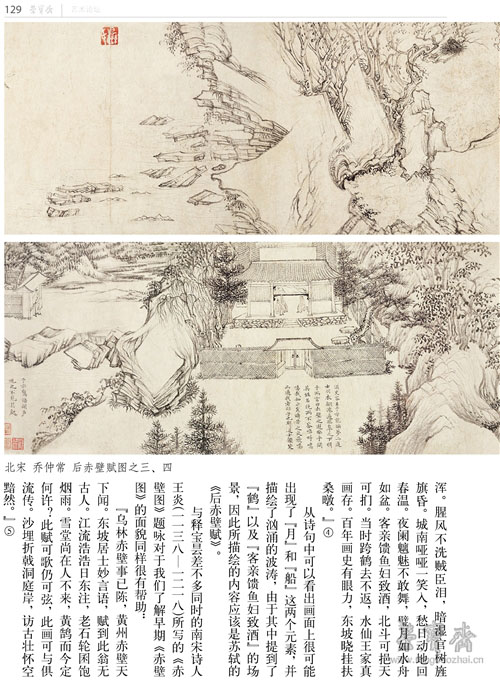 129 荣宝斋 | 艺术论坛
北宋 乔仲常 后赤壁赋图之三、四
浑。腥风不洗贼臣泪，暗湿官树旌
旗昏。城南哑哑一笑入，愁日动地回
春温。夜阑魑魅不敢舞，璧月如舟
如盆。客亲馈鱼妇致酒，北斗可挹天
可扪。当时跨鹤去不返，水仙王家真
画存。百年画史有眼力，东坡晓挂扶
桑暾。』④
从诗句中可以看出画面上很可能
出现了『月』和『船』这两个元素，并
描绘了汹涌的波涛，由于其中提到了
『鹤』以及『客亲馈鱼妇致酒』的场
景，因此所描绘的内容应该是苏轼的
《后赤壁赋》。
与释宝昙差不多同时的南宋诗人
王炎（一一三八—一二一八）所写的《赤
壁图》题咏对于我们了解早期《赤壁
图》的面貌同样很有帮助：
『乌林赤壁事已陈，黄州赤壁天
下闻。东坡居士妙言语，赋到此翁无
古人。江流浩浩日东注，老石轮囷饱
烟雨。雪堂尚在人不来，黄鹄而今定
何许？此赋可歌仍可弦，此画可与俱
流传。沙埋折戟洞庭岸，访古壮怀空
黯然。』⑤